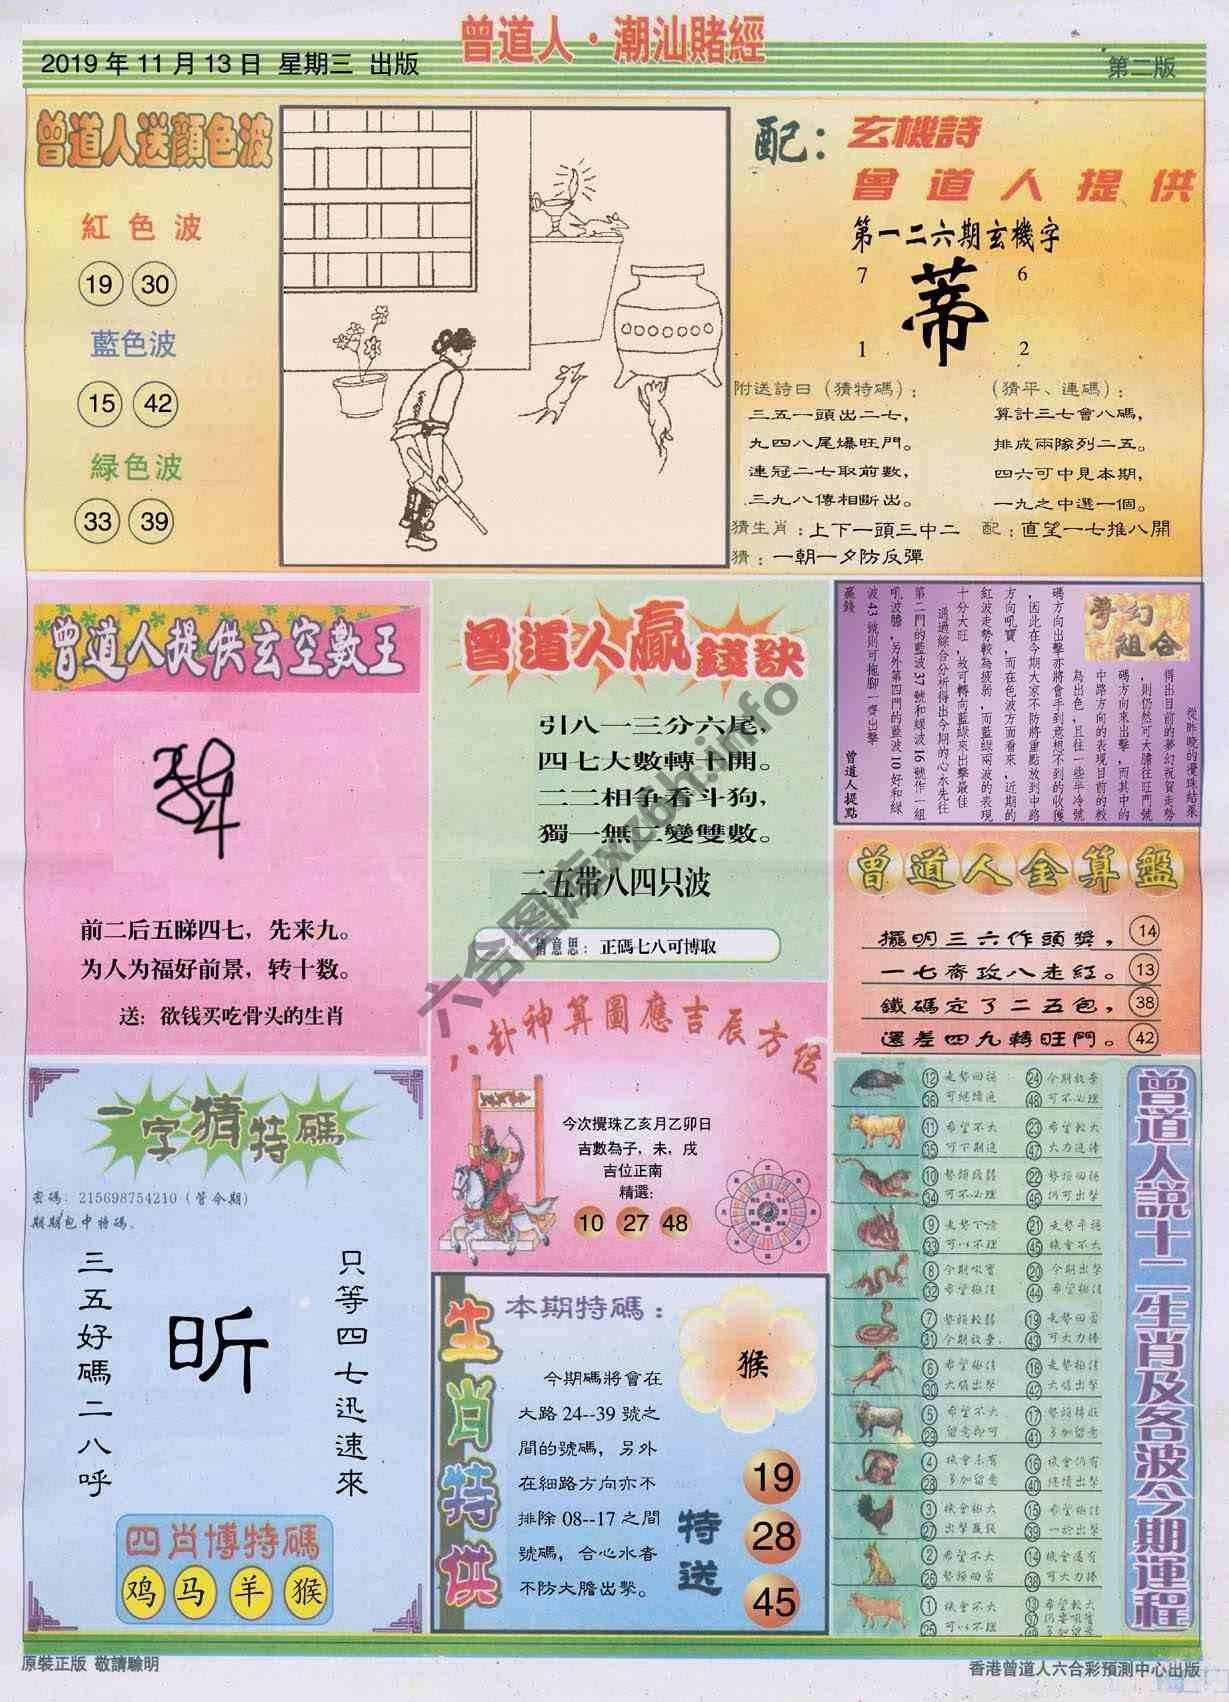 曾道人·潮汕賭經
2019年11月13日 星期三 出版
第二版
曾道人送顏色波
紅色波
19 30
藍色波
15 42
緑色波
33 39
配：玄機詩
曾道人提供
第一二六期玄機字
7 6
蒂
1 2
附送詩曰（猜特碼）：
三五一頭出二七，
九四八尾爆旺門。
連冠二七取前數，
三九八傳相斷出。
（猜平、連碼）：
算計三七會八碼，
排成兩隊列二五。
四六可中見本期，
一九之中選一個。
猜生肖：上下一頭三中二 配：直望一七推八開
猜：一朝一夕防反彈
曾道人提供玄空數王
前二后五睇四七，先来九。
为人为福好前景，转十数。
送：欲钱买吃骨头的生肖
曾道人贏錢訣
引八一三分六尾，
四七大數轉十開。
二二相争看斗狗，
獨一無二變雙數。
二五带八四只波
猜意思：正碼七八可博取
夢幻組合
從昨晚的攪珠結果
得出目前的夢幻祝賀走勢
，則仍然可大膽往旺門號
碼方向來出擊，而其中的
中路方向的表現目前的較
為出色，且往一些半冷號
碼方向出擊亦將會手到意想不到的收獲
，因此在今期大家不防將重點放到中路
方向吼寶，而在色波方面看來，近期的
紅波走勢較為疲弱，而藍緑兩波的表現
十分大旺，故可轉向藍緑來出擊最佳
通過綜合分析得出今期的心水先往
第二門的藍波37號和緑波16號作一組
吼波膽，另外第四門的藍波10好和緑
波43號則可拖腳一齊出擊
贏錢
曾道人提點
曾道人金算盤
擺明三六作頭獎， 14
一七齊攻八走紅。 13
鐵碼定了二五包， 38
還差四九轉旺門。 42
八卦神算圖應吉辰方位
今次攪珠乙亥月乙卯日
吉數為子，未，戌
吉位正南
精選：
10 27 48
一字猜特碼
密碼：215698754210（管令期）
期期包中特碼。
只等四七迅速來
昕
三五好碼二八呼
四肖博特碼
鸡 马 羊 猴
生肖特供
本期特碼：
猴
今期碼將會在
大路24--39號之
間的號碼，另外
在細路方向亦不
排除08--17之間
號碼，合心水者
不防大膽出擊。
特送
19
28
45
曾道人説十二生肖及各波今期運程
12 走勢回穩 24 今期放棄
36 可繼續追 48 可不必理
11 希望不大 23 希望較大
35 可下期追 47 大力追捧
10 勢頭疲弱 22 勢頭回穩
34 可不必理 46 仍可出擊
9 走勢下滑 21 走勢平穩
33 可以不理 45 機會不大
8 今期吼寶 20 今期出擊
32 希望極佳 44 希望極佳
7 勢頭較弱 19 走勢回勇
31 今期放棄 43 可大力捧
6 希望極佳 18 走勢極佳
30 大膽出擊 42 大膽出擊
5 希望不大 17 勢頭轉旺
29 留意即可 41 多加留意
4 機會未有 16 機會仍有
28 多加留意 40 繼續出擊
3 機會極大 15 希望極佳
27 出擊贏錢 39 一於出擊
2 希望不大 14 機會還有
26 勢頭回勇 38 可大力捧
1 機會不大 13 希望較大
25 可以不理 37 仍要吼實
49 多加留意
六合图库xzbh.info
原裝正版 敬請驗明
香港曾道人六合彩預測中心出版